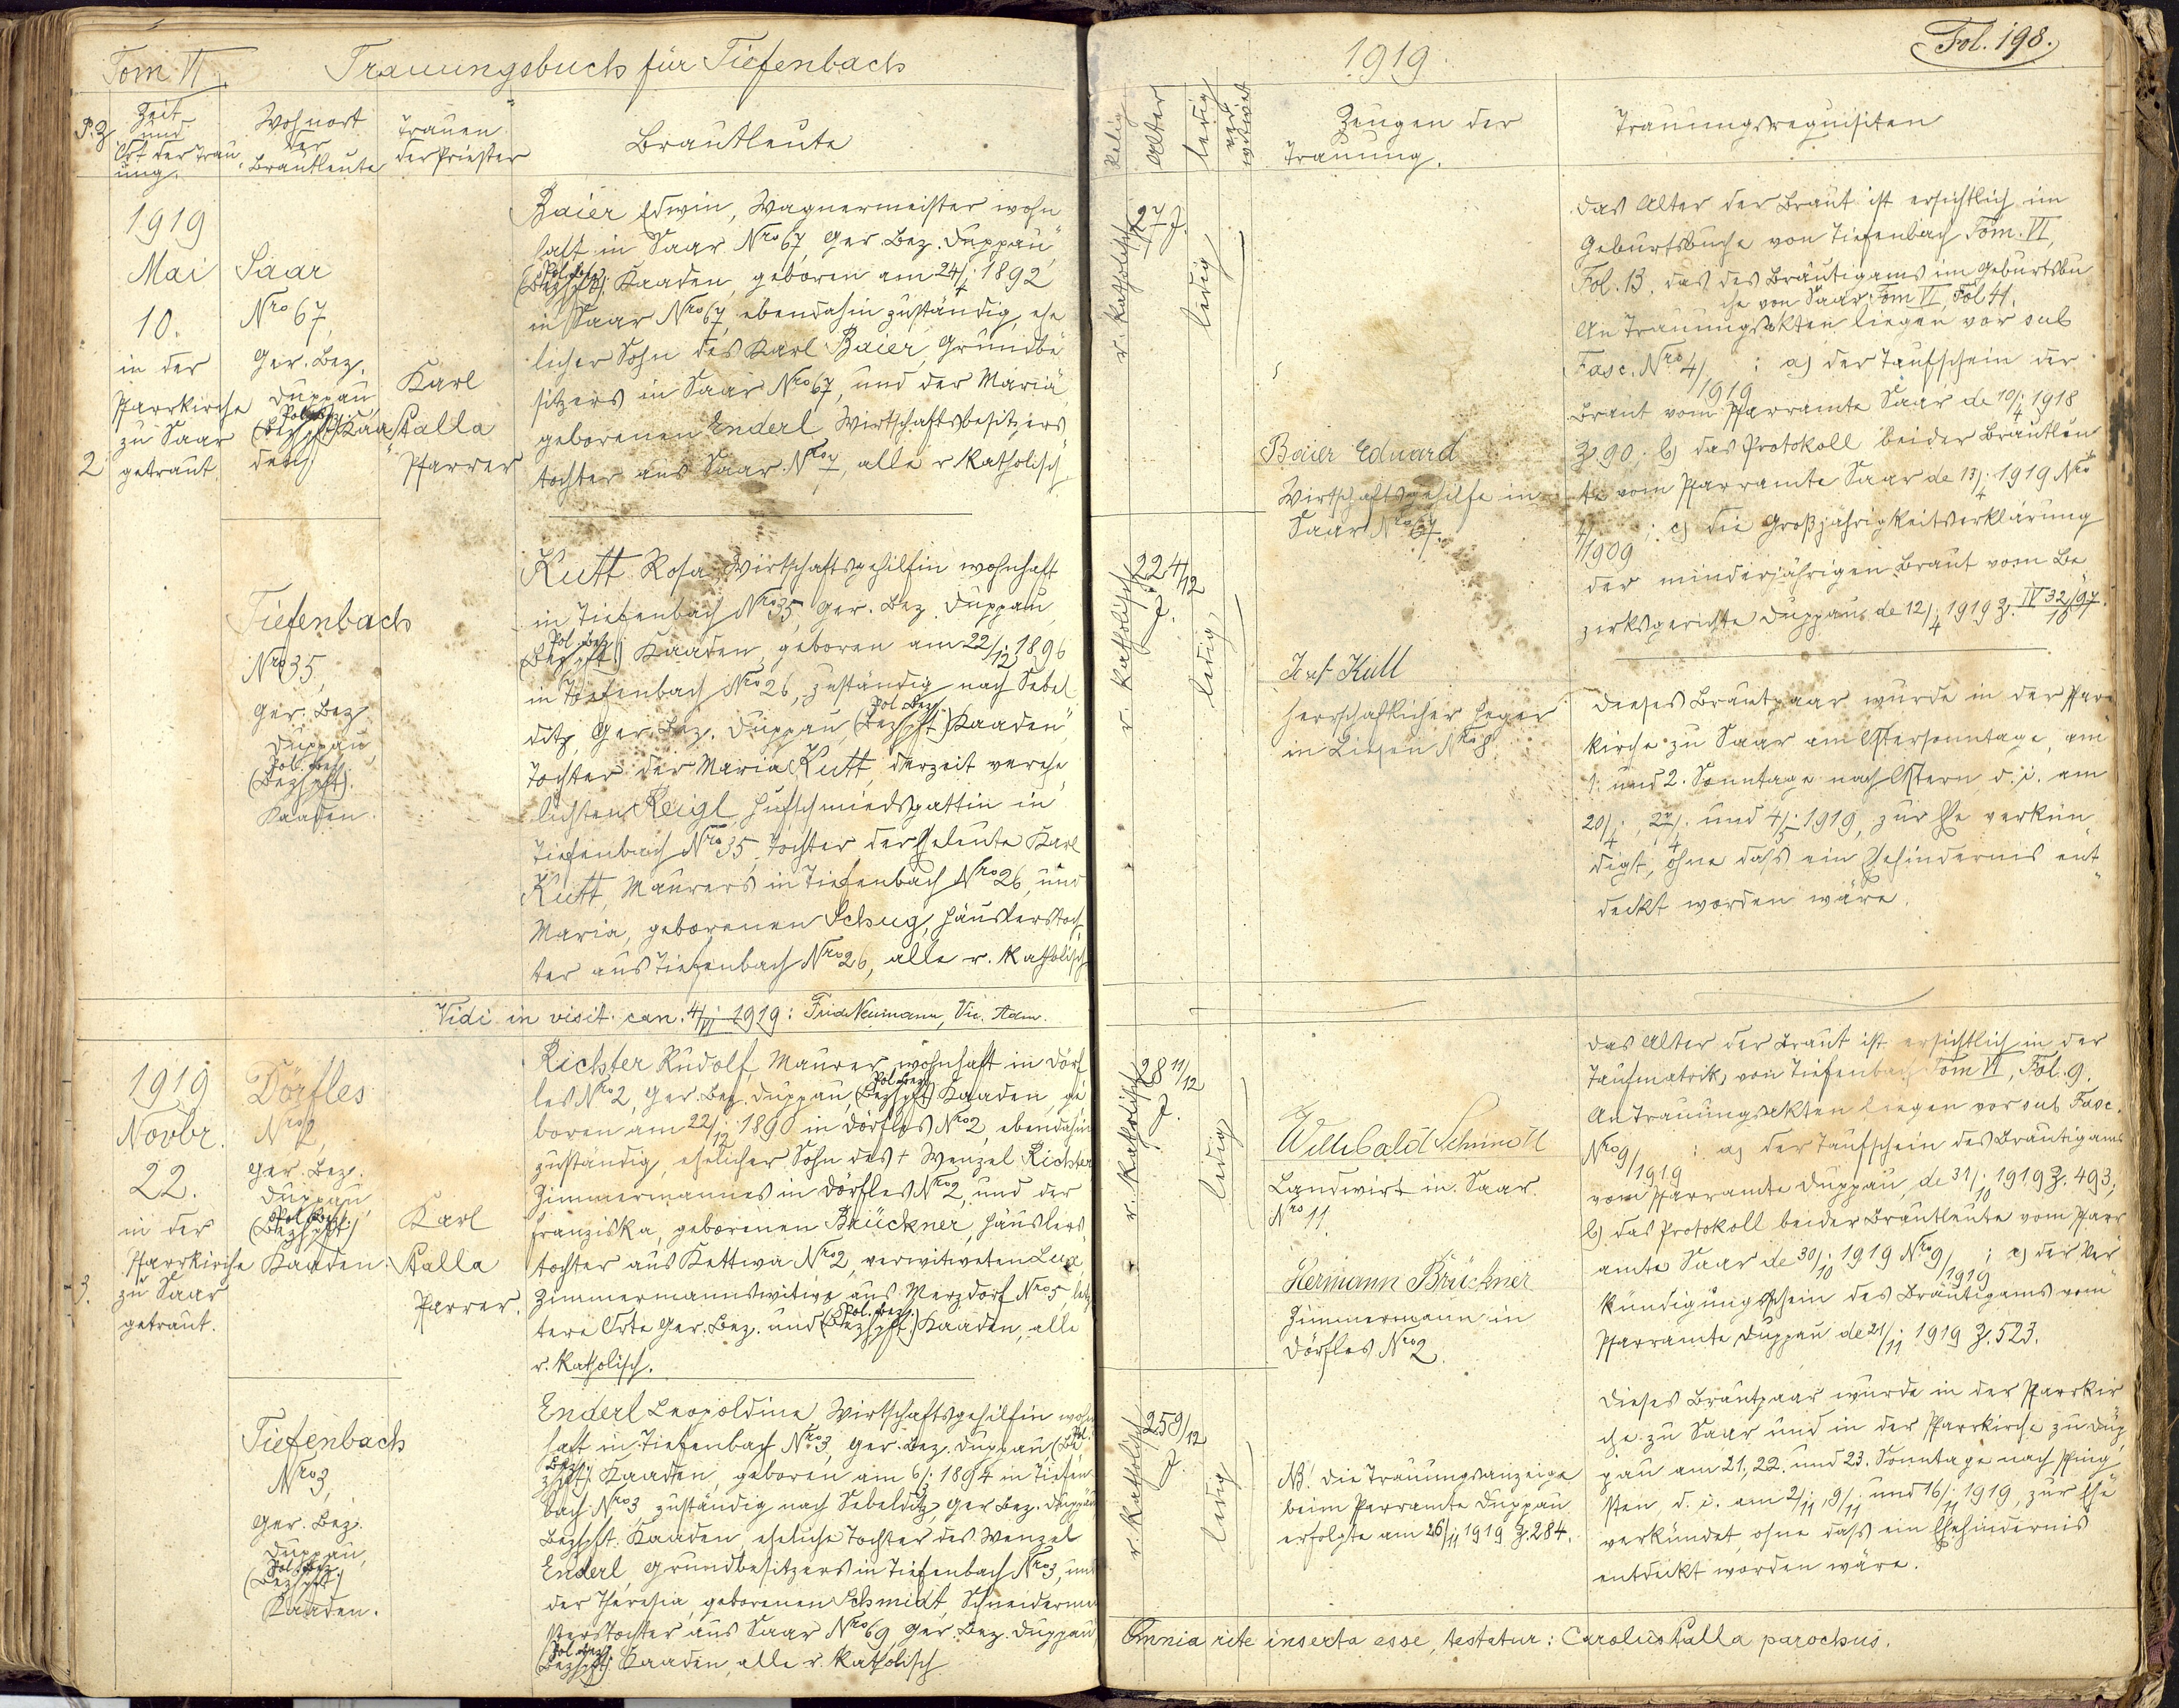 Tom VI
Trauungsbuch für Tiefenbach
P. Z.
Zeit
und
Ort der Trau
ung.
Wohnort
der
Brautleute
Trauen
der Priester
Brautleute
1919
Mai
10.
in der
Pfarrkirche
zu Saar
2 getraut.
Saar
Nro 67,
Ger. Bez.
Duppau,
Pol. Bez.
(Bezhpt.) Kaa
den
Karl
Kalla
Pfarrer
Baier Edwin, Wagnermeister wohn
haft in Saar Nro 67, Ger. Bez. Duppau,
Pol. Bez.
(Bezhpt.) Kaaden, geboren am 24/4. 1892
in Saar Nro 67, ebendahin zuständig, ehe
licher Sohn des Karl Baier, Grundbe
sitzers in Saar Nro 67, und der Maria
geborenen Enderl Wirtschaftsbesitzers
tochter aus Saar Nro 7, alle r. katholisch
Tiefenbach
Nro 35,
Ger. Bez.
Duppau,
Pol. Bez.
(Bezhpt.)
Kaaden.
Kutt Rosa, Wirtschaftsgehilfin wohnhaft
in Tiefenbach Nro 35, Ger. Bez. Duppau,
Pol. Bez.
(Bezhpt.) Kaaden, geboren am 22/12. 1896
in Tiefenbach Nro 26, zuständig nach Sebel
Pol. Bez.
ditz, Ger. Bez. Duppau, (Bezhpt.) Kaaden,
Tochter der Maria Kutt, derzeit verehe
lichten Reigl Hufschmiedsgattin in
Tiefenbach Nro 35, Tochter der Eheleute Karl
Kutt, Maurers in Tiefenbach Nro 26, und
Maria, geborenen Schug, Häuslerstoch
ter aus Tiefenbach Nro 26, alle r. katholisch
Vidi in visit. can. 4/VI 1919: Frid. Neumann, Vic. Adm.
1919
Novbr.
22.
in der
Pfarrkirche
3. zu Saar
getraut.
Dörfles
Nro 2,
Ger. Bez.
Duppau,
Pol. Bez.
(Bezhpt.)
Kaaden.
Karl
Kalla
Pfarrer.
Richter Rudolf, Maurer, wohnhaft in Dörf
Pol. Bez.
les Nro 2, Ger. Bez. Duppau, (Bezhpt.) Kaaden, ge
boren am 22/12. 1890 in Dörfles Nro 2, ebendahin
zuständig, ehelicher Sohn des + Wenzel Richter
Zimmermannes in Dörfles Nro 2, und der
Franziska, geborenen Brückner, Häuslers
tochter aus Kettwa Nro 2, verwitweten Lux,
Zimmermannswitwe aus Merzdorf Nro 5, letz
Pol. Bez.
tere Orte Ger. Bez. und (Bezhpt.) Kaaden, alle
r. katholisch.
Tiefenbach
Nro 3,
Ger. Bez.
Duppau,
Pol. Bez.
(Bezhpt.)
Kaaden.
Enderl Leopoldine, Wirtschaftsgehilfin wohn
haft in Tiefenbach Nro 3, Ger. Bez. Duppau, (Be
Pol. Bez.
zhpt.) Kaaden, geboren am 6/3. 1894 in Tiefen
bach Nro 3 zuständig nach Sebelditz, Ger. Bez. Duppau
Bezhpt. Kaaden, eheliche Tochter des Wenzel
Enderl, Grundbesitzers in Tiefenbach Nro 3, und
der Theresia, geborenen Schmidt, Schneiderme
isterstochter aus Saar Nro 69, Ger. Bez. Duppau,
Pol. Bez.
(Bezhpt.) Kaaden, alle r. katholisch
1919.
Fol. 198.
Relig
Alter
ledig
ver
witwet
Zeugen der
Trauung.
Trauungsrequisiten
r. katholisch
27 J.
ledig
r. katholisch
22 4/12
J.
ledig
Baier Eduard
Wirtschaftsgehilfe in
Saar Nro 67.
Josef Kutt
herrschaftlicher Heger
in Liesen Nro 8.
Das Alter der Braut ist ersichtlich im
Geburtsbuche von Tiefenbach Tom. VI,
Fol. 13. das des Bräutigams im Geburtsbu
che von Saar Tom VI, Fol 41.
An Trauungsakten liegen vor sub
Fasc. Nro 4/1919: a) der Taufschein der
Braut vom Pfarramte Saar de 10/4. 1918
Z. 90. b) das Protokoll beider Brautleu
te vom Pfarramte Saar de 13/4. 1919 Nro
4/1909; c) die Großjährigkeitserklärung
der minderjährigen Braut vom Be
zirksgerichte Duppau de 12/4. 1919 Z. IV 32/97
18
Dieses Brautpaar wurde in der Pfarr
kirche zu Saar am Ostersonntage, am
1. und 2. Sonntage nach Ostern d. i. am
20/4., 27/4. und 4/5. 1919, zur Ehe verkün
digt, ohne daß ein Ehehindernis ent
deckt worden wäre.
r. katholisch
28 11/12
J.
ledig
r. katholisch
25 8/12
J.
ledig
Willibald Schmidt
Landwirt in Saar
Nro 11.
Hermann Brückner
Zimmermann in
Dörfles Nro 2.
NB! Die Trauungsanzeige
beim Pfarramte Duppau
erfolgte am 26/11 1919 Z. 284.
Das Alter der Braut ist ersichtlich in der
Taufmatrik von Tiefenbach Tom VI, Fol. 9.
An Trauungsakten liegen vor sub Fasc.
Nro 9/1919: a) der Taufschein des Bräutigams
vom Pfarramte Duppau, de 31/10. 1919 Z. 493;
b) das Protokoll beider Brautleute vom Pfarr
amte Saar de 30/10. 1919 Nro 9/1919; c) der Ver
kündigungsschein des Bräutigams vom
Pfarramte Duppau de 21/11. 1919 Z. 523.
Dieses Brautpaar wurde in der Pfarrkir
che zu Saar und in der Pfarrkirche zu Dup
pau am 21., 22. und 23. Sonntage nach Pfing
sten, d. i. am 2/11., 9/11. und 16/11. 1919, zur Ehe
verkündet, ohne daß ein Ehehindernis
entdeckt worden wäre.
Omnia rite inserta esse, testatur: Carolus Kalla parochus.